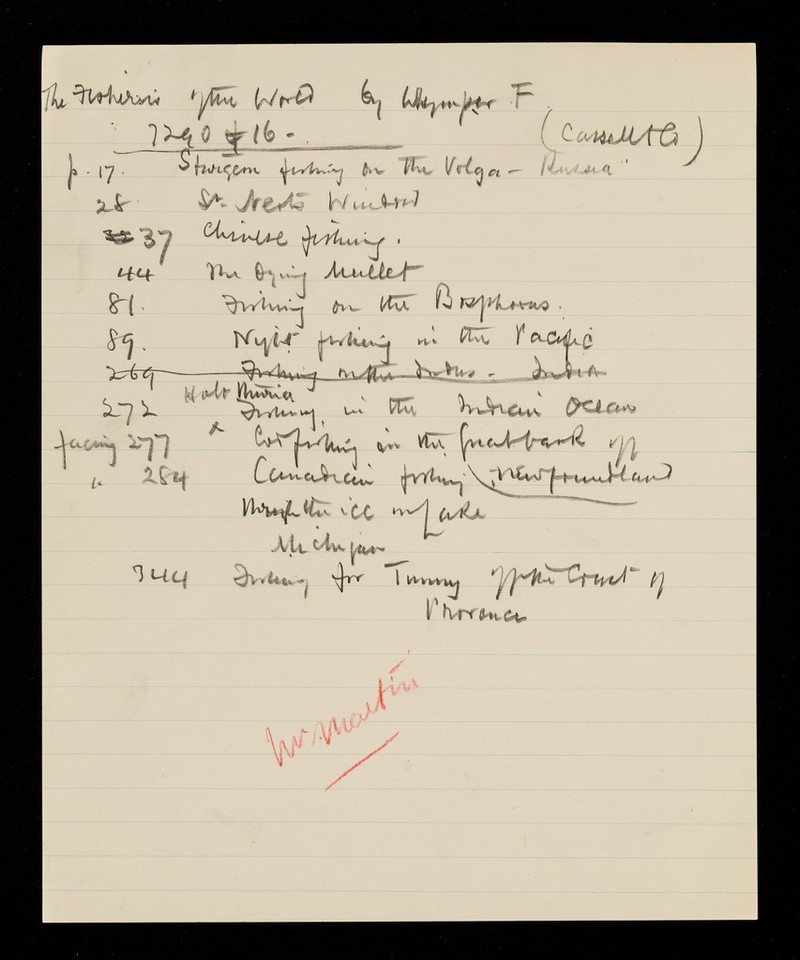 The Fisheries of the World by Whymper F.
7290 f 16 -
(Cassell & Co)
p. 17. Sturgeon fishing on the Volga - Russia"
28 St. Windsor
37 Chinese fishing.
44 The Dying Mullet
81. Fishing on the Bosphorus.
89. Night fishing in the Pacific
269 Fishing on the Indus - India
Halt Muria
272 Fishing in the Indian Ocean
facing 277 x Cod fishing in the Great bank off
" 284 Canadian fishing Newfoundland
through the ice in Lake
Michigan
344 Fishing for Tunny off the Coast of
Provence
Mr Martin